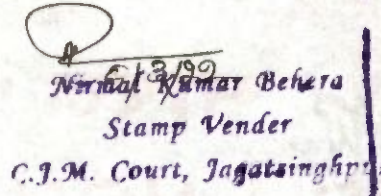 6/3/99
Nirmal Kumar Behera
Stamp Vender
C.J.M. Court, Jagatsinghp